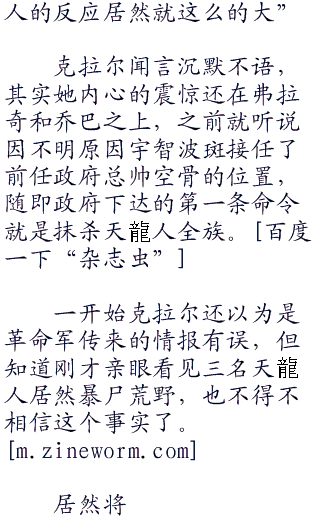 人的反应居然就这么的大”
克拉尔闻言沉默不语，
其实她内心的震惊还在弗拉
奇和乔巴之上，之前就听说
因不明原因宇智波斑接任了
前任政府总帅空骨的位置，
随即政府下达的第一条命令
就是抹杀天龍人全族。[百度
一下“杂志虫”]
一开始克拉尔还以为是
革命军传来的情报有误，但
知道刚才亲眼看见三名天龍
人居然暴尸荒野，也不得不
相信这个事实了。
[m.zineworm.com]
居然将